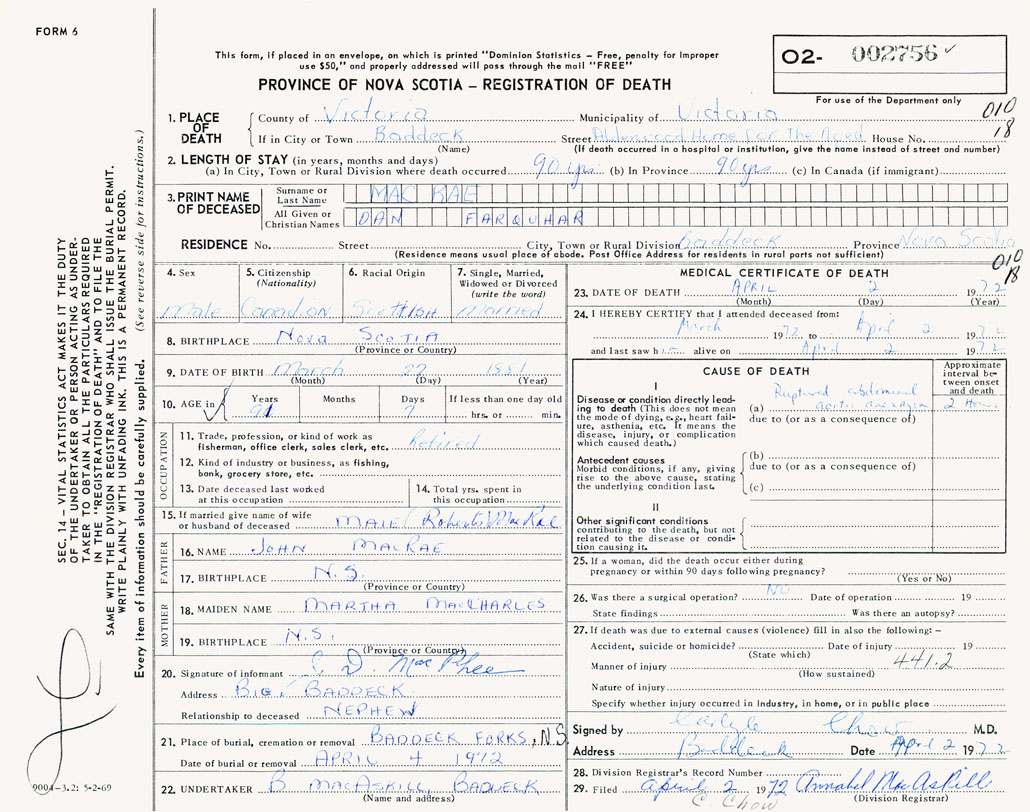 FORM 6
This form, if placed in an envelope, on which is printed "Dominion Statistics – Free, penalty for improper
use $50," and properly addressed will pass through the mail "FREE"
PROVINCE OF NOVA SCOTIA – REGISTRATION OF DEATH
O2- 002756 ✓
For use of the Department only
010
18
1. PLACE OF DEATH
County of Victoria Municipality of Victoria
If in City or Town Baddeck Street Alderwood Home For The Aged House No.
(Name) (If death occurred in a hospital or institution, give the name instead of street and number)
2. LENGTH OF STAY (in years, months and days)
(a) In City, Town or Rural Division where death occurred 90 yrs (b) In Province 90 yrs (c) In Canada (if immigrant)
3. PRINT NAME OF DECEASED
Surname or Last Name MAC RAE
All Given or Christian Names DAN FARQUHAR
RESIDENCE No. Street City, Town or Rural Division Baddeck Province Nova Scotia
(Residence means usual place of abode. Post Office Address for residents in rural parts not sufficient)
010
18
4. Sex Male
5. Citizenship (Nationality) Canadian
6. Racial Origin Scottish
7. Single, Married, Widowed or Divorced (write the word) Married
8. BIRTHPLACE Nova Scotia
(Province or Country)
9. DATE OF BIRTH March 27 1881
(Month) (Day) (Year)
10. AGE in Years 91 Months Days 7 If less than one day old
hrs. or min.
OCCUPATION
11. Trade, profession, or kind of work as
fisherman, office clerk, sales clerk, etc. Retired
12. Kind of industry or business, as fishing,
bank, grocery store, etc.
13. Date deceased last worked
at this occupation
14. Total yrs. spent in
this occupation
15. If married give name of wife
or husband of deceased (Roberts) MacRae
FATHER
16. NAME John MacRae
17. BIRTHPLACE N.S.
(Province or Country)
MOTHER
18. MAIDEN NAME MARTHA MacCHARLES
19. BIRTHPLACE N.S.
(Province or Country)
20. Signature of informant MacPhee
Address BIG BADDECK
Relationship to deceased NEPHEW
21. Place of burial, cremation or removal BADDECK FORKS, N.S.
Date of burial or removal APRIL 4 1972
22. UNDERTAKER B. MACASKILL BADDECK
(Name and address)
MEDICAL CERTIFICATE OF DEATH
23. DATE OF DEATH APRIL 2 1972
(Month) (Day) (Year)
24. I HEREBY CERTIFY that I attended deceased from:
March 1972 to April 2 1972
and last saw him alive on April 2 1972
CAUSE OF DEATH
Approximate interval between onset and death
I
Disease or condition directly lead-
ing to death (This does not mean
the mode of dying, e.g., heart fail-
ure, asthenia, etc. It means the
disease, injury, or complication
which caused death.)
(a) Ruptured abdominal
aortic aneurysm 2 Hours
due to (or as a consequence of)
Antecedent causes
Morbid conditions, if any, giving
rise to the above cause, stating
the underlying condition last.
(b)
due to (or as a consequence of)
(c)
II
Other significant conditions
contributing to the death, but not
related to the disease or condi-
tion causing it.
25. If a woman, did the death occur either during
pregnancy or within 90 days following pregnancy?
(Yes or No)
26. Was there a surgical operation? NO Date of operation 19
State findings Was there an autopsy?
27. If death was due to external causes (violence) fill in also the following: –
Accident, suicide or homicide? Date of injury 19
(State which)
Manner of injury 441.2
(How sustained)
Nature of injury
Specify whether injury occurred in industry, in home, or in public place
Signed by Carlyle Chow M.D.
Address Baddeck Date April 2 1972
28. Division Registrar's Record Number
29. Filed April 2 1972 Annabel MacAskill
C Chow (Division Registrar)
SEC. 14 – VITAL STATISTICS ACT MAKES IT THE DUTY
OF THE UNDERTAKER OR PERSON ACTING AS UNDER-
TAKER TO OBTAIN ALL THE PARTICULARS REQUIRED
IN THE "REGISTRATION OF DEATH" AND TO FILE THE
SAME WITH THE DIVISION REGISTRAR WHO SHALL ISSUE THE BURIAL PERMIT.
WRITE PLAINLY WITH UNFADING INK. THIS IS A PERMANENT RECORD.
Every item of information should be carefully supplied. (See reverse side for instructions.)
9004-3.2: 5-2-69